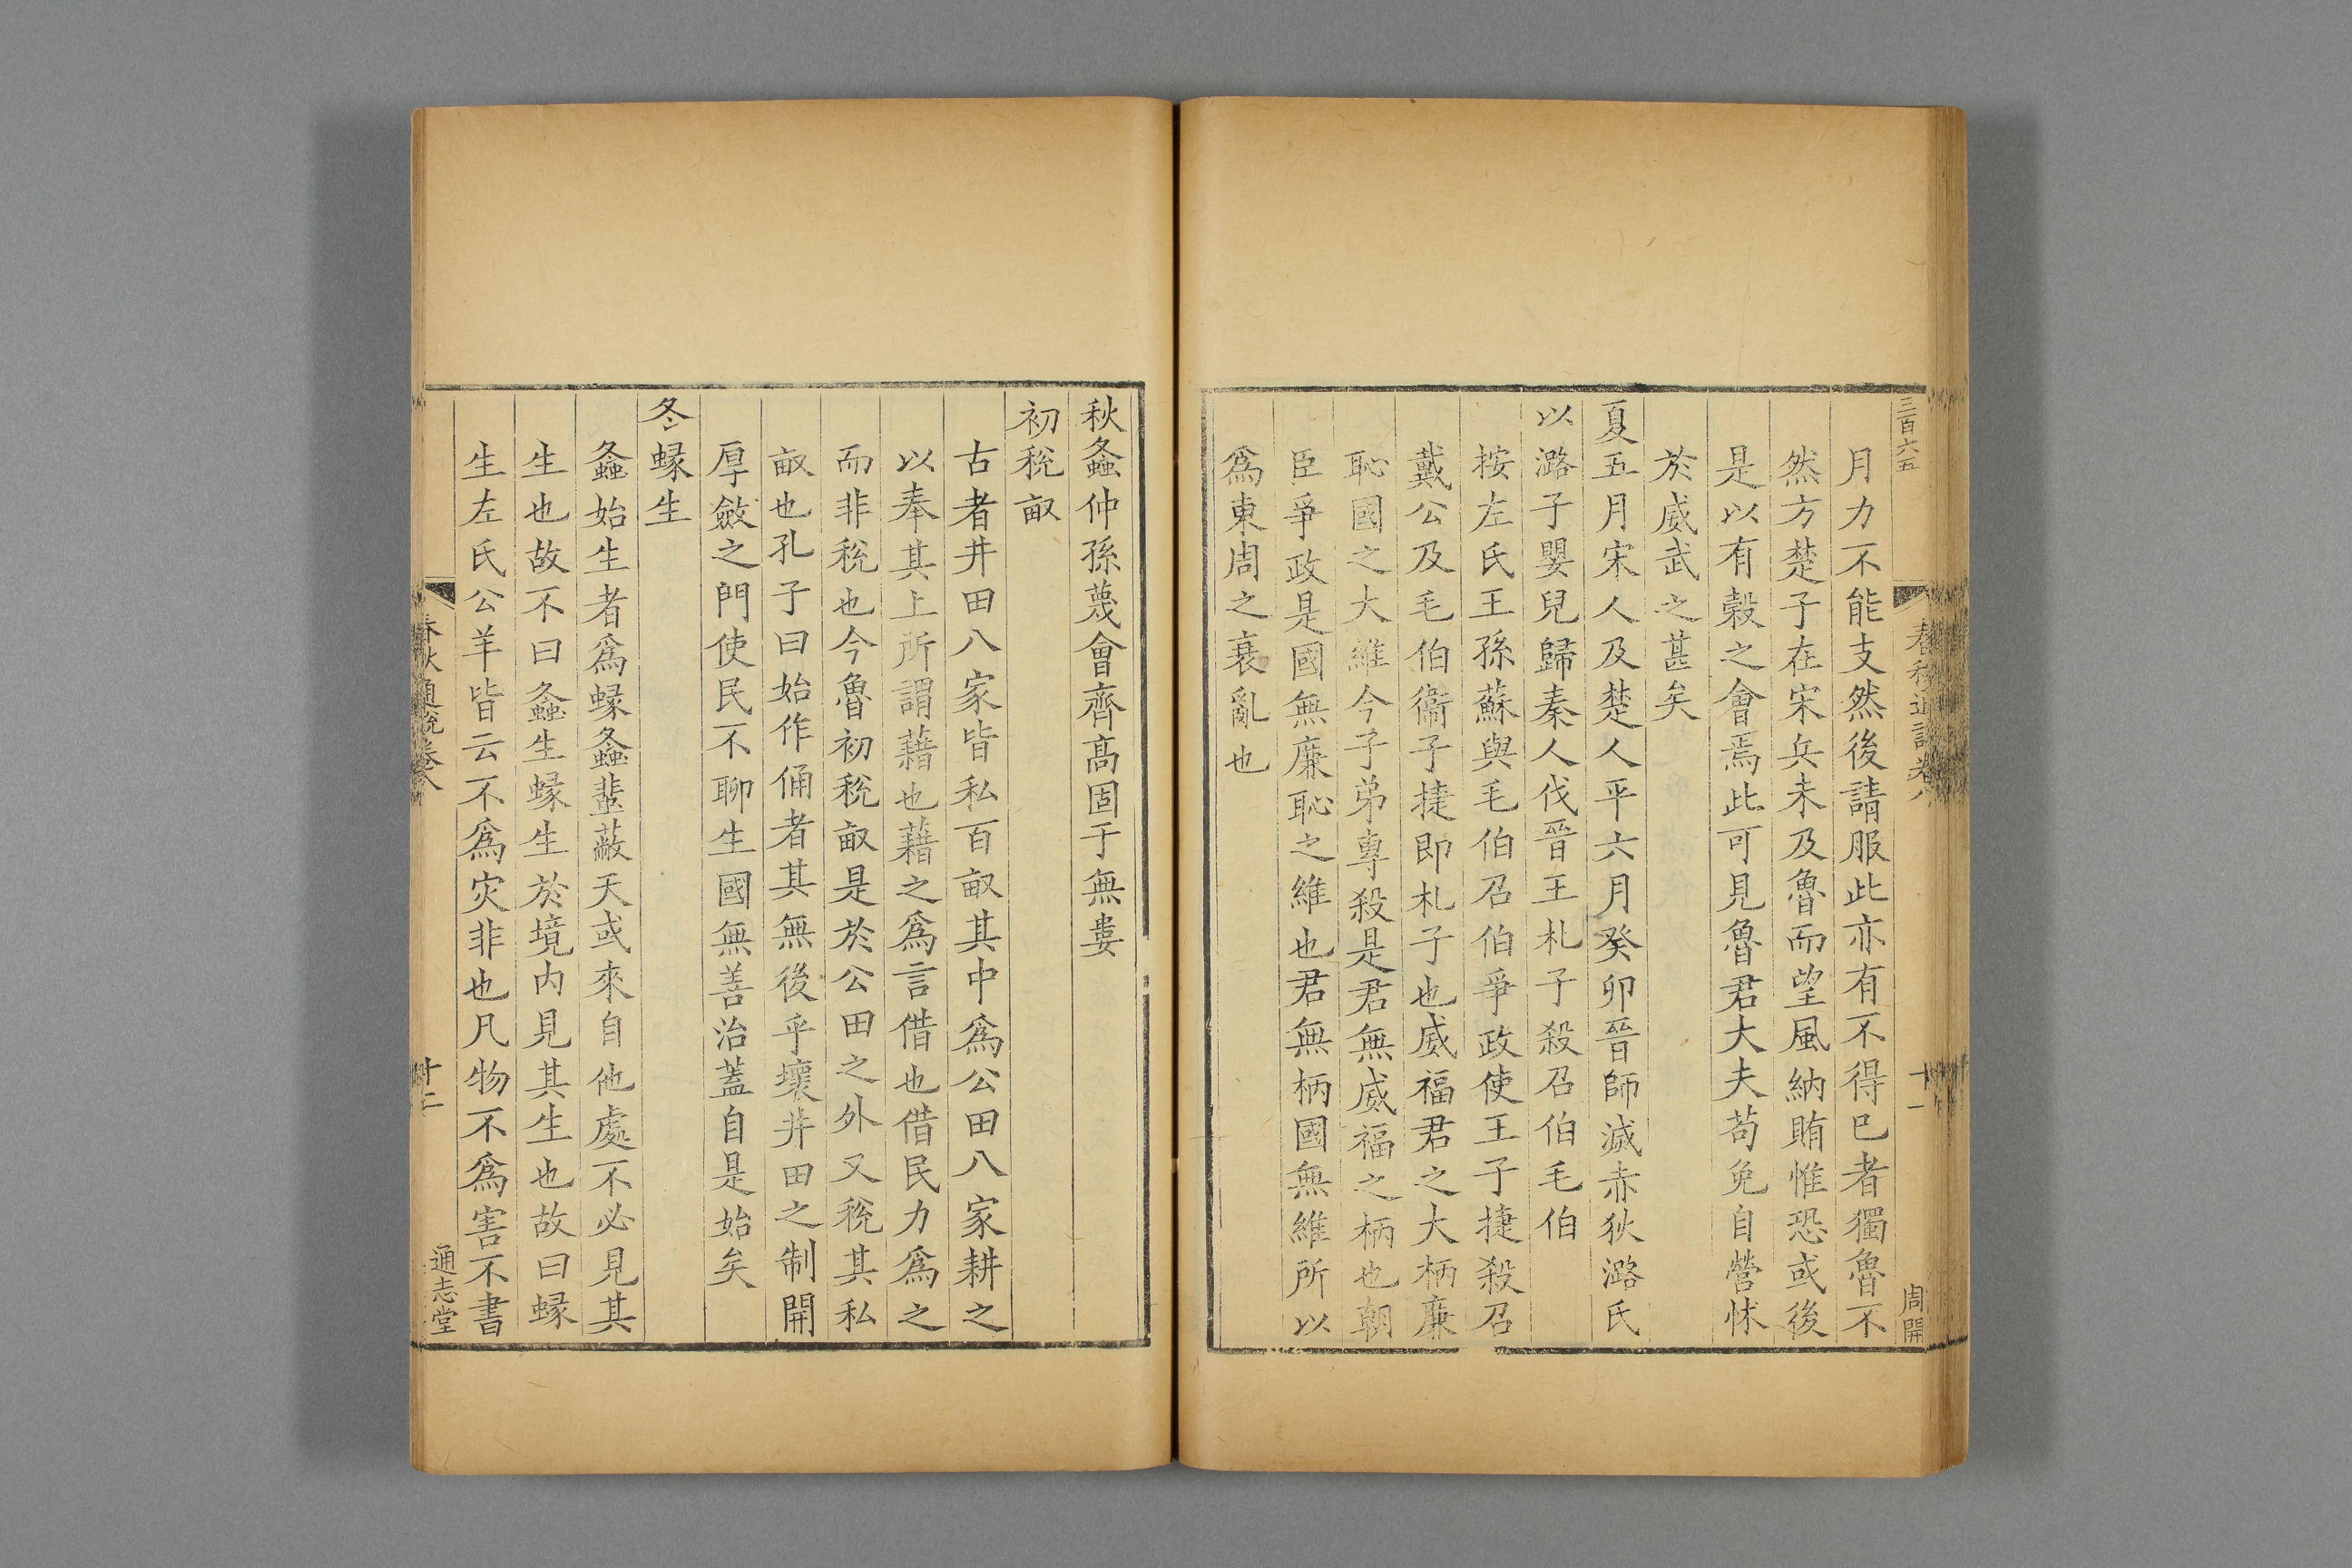 三百六五
春秋通說卷八
十一
周開
月力不能支然後請服此亦有不得已者獨魯不
然方楚子在宋兵未及魯而望風納賄惟恐或後
是以有穀之會焉此可見魯君大夫苟免自營怵
於威武之甚矣
夏五月宋人及楚人平六月癸卯晉師滅赤狄潞氏
以潞子嬰兒歸秦人伐晉王札子殺召伯毛伯
按左氏王孫蘇與毛伯召伯爭政使王子捷殺召
戴公及毛伯衞子捷即札子也威福君之大柄廉
恥國之大維今子弟專殺是君無威福之柄也朝
臣爭政是國無廉恥之維也君無柄國無維所以
爲東周之衰亂也
秋螽仲孫蔑會齊高固于無婁
初稅畝
古者井田八家皆私百畝其中爲公田八家耕之
以奉其上所謂藉也藉之爲言借也借民力爲之
而非稅也今魯初稅畝是於公田之外又稅其私
畝也孔子曰始作俑者其無後乎壞井田之制開
厚斂之門使民不聊生國無善治蓋自是始矣
冬蝝生
螽始生者爲蝝螽蜚蔽天或來自他處不必見其
生也故不曰螽生蝝生於境内見其生也故曰蝝
生左氏公羊皆云不爲灾非也凡物不爲害不書
春秋通說卷八
十二
通志堂